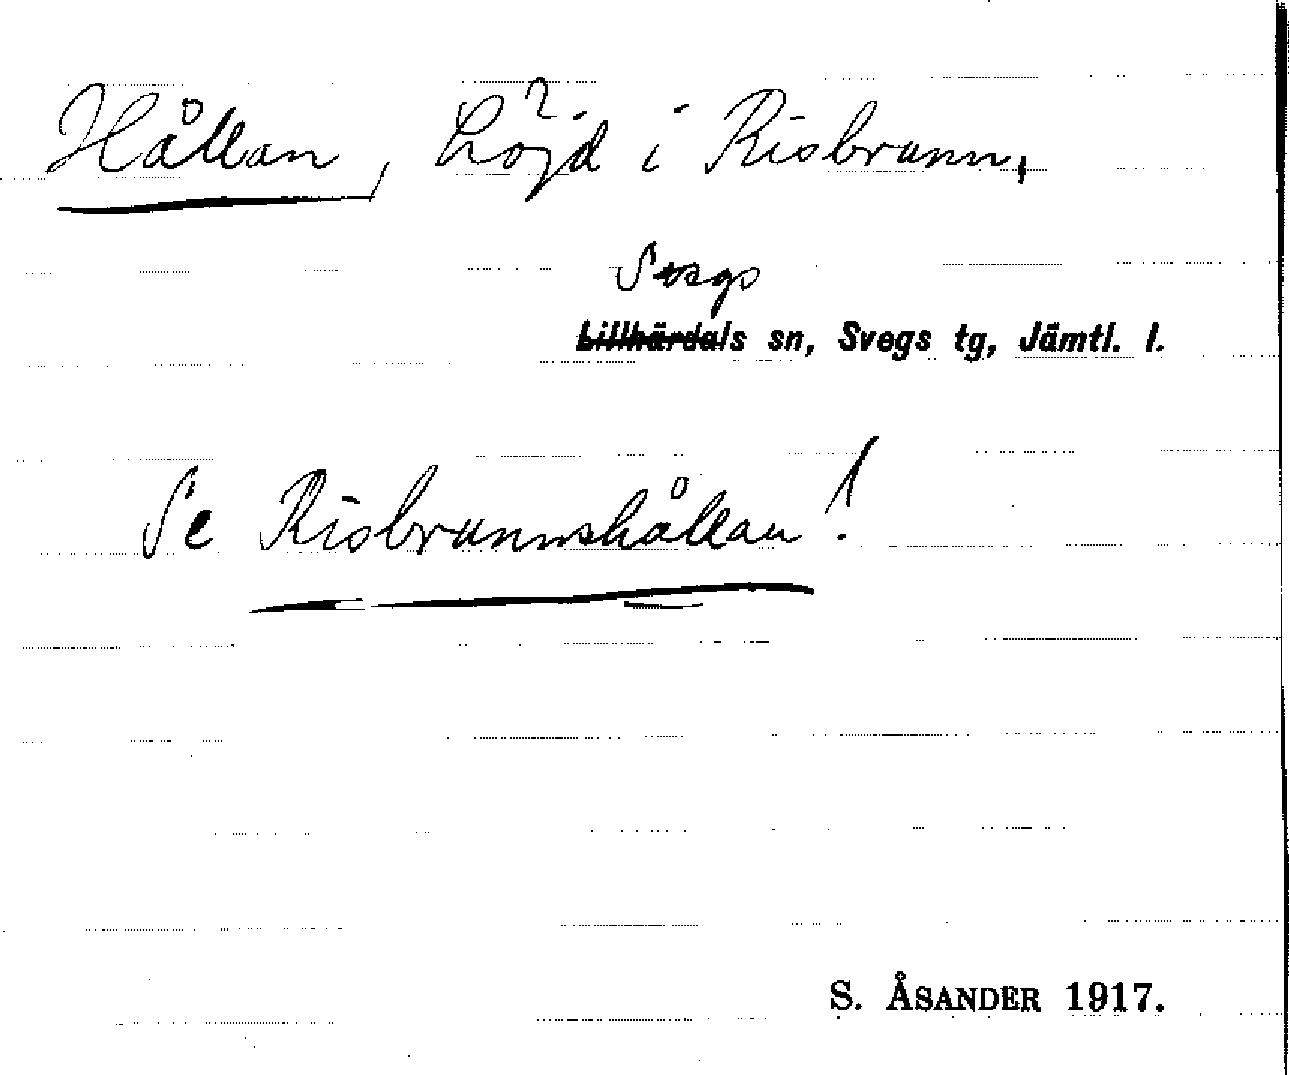 Hållan, Höjd i Risbrunn,
Svegs
Lillhärdals sn, Svegs tg, Jämtl. l.
Se Risbrunnshållan!
S. ÅSANDER 1917.